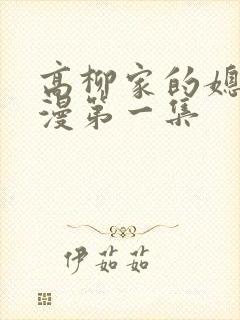 高柳家的媳
漫第一集
伊茹茹